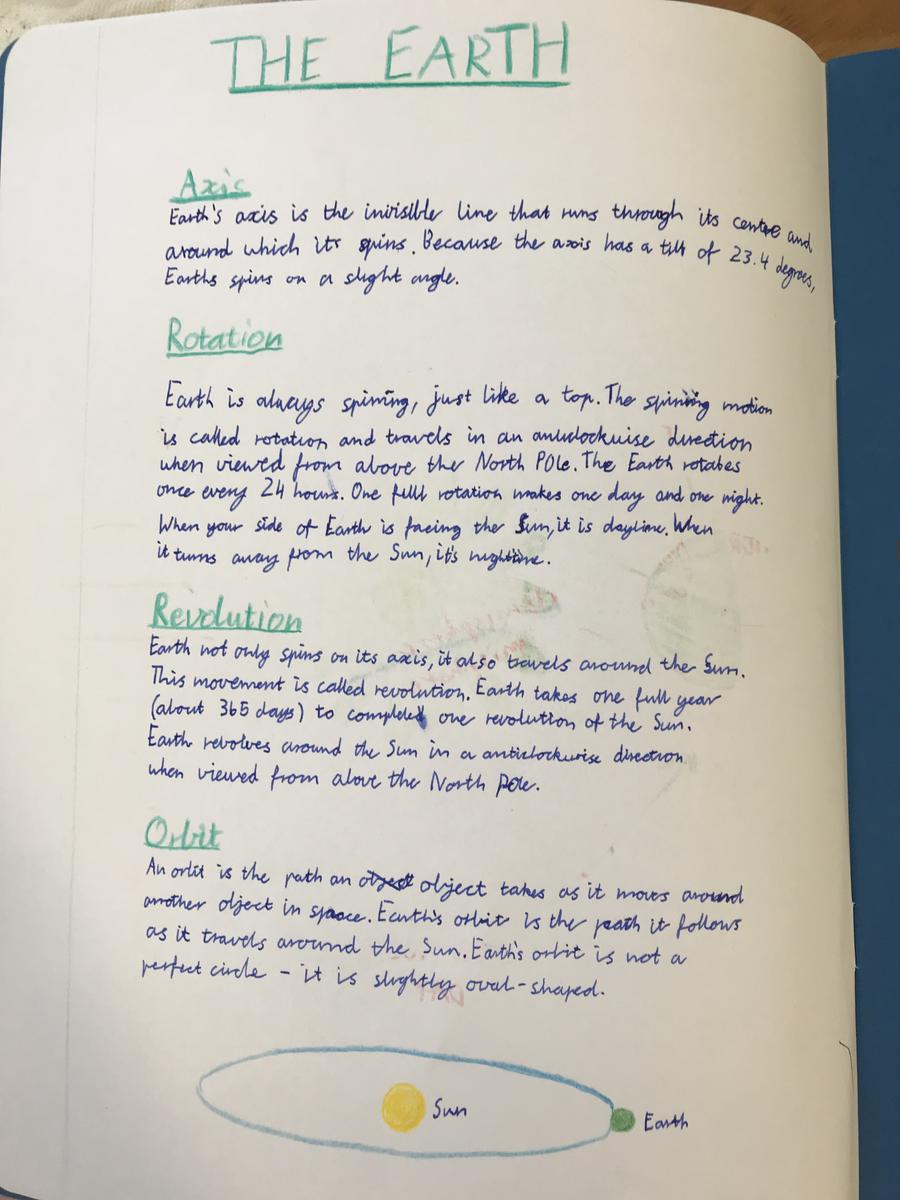 THE EARTH
Axis
Earth's axis is the invisible line that runs through its centre and
around which its spins. Because the axis has a tilt of 23.4 degrees,
Earths spins on a slight angle.
Rotation
Earth is always spinning, just like a top. The spinning motion
is called rotation and travels in an anticlockwise direction
when viewed from above the North POle. The Earth rotates
once every 24 hours. One full rotation makes one day and one night.
When your side of Earth is facing the Sun, it is daytime. When
it turns away from the Sun, it's nighttime.
Revolution
Earth not only spins on its axis, it also travels around the Sun.
This movement is called revolution. Earth takes one full year
(about 365 days) to complete one revolution of the Sun.
Earth revolves around the Sun in a anticlockwise direction
when viewed from above the North Pole.
Orbit
An orbit is the path an object object takes as it moves around
another object in space. Earth's orbit is the path it follows
as it travels around the Sun. Earth's orbit is not a
perfect circle - it is slightly oval-shaped.
Sun
Earth